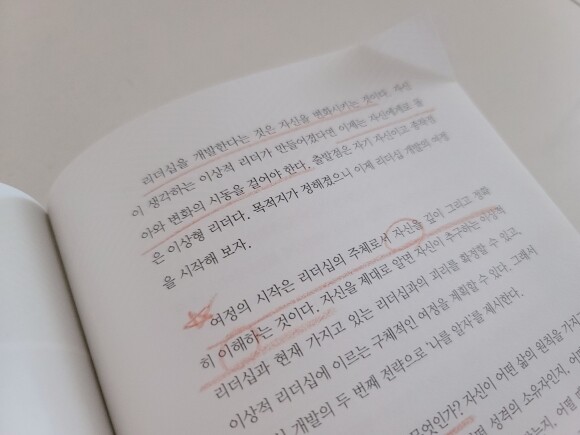 리더십을 개발한다는 것은 자신을 변화시키는 것이다. 자신
이 생각하는 이상적 리더가 만들어졌다면 이제는 자신에게로 돌
아와 변화의 시동을 걸어야 한다. 출발점은 자기 자신이고 종착점
은 이상형 리더다. 목적지가 정해졌으니 이제 리더십 개발의 여정
을 시작해 보자.
여정의 시작은 리더십의 주체로서 자신을 깊이 그리고 정확
히 이해하는 것이다. 자신을 제대로 알면 자신이 추구하는 이상적
리더십과 현재 가지고 있는 리더십과의 괴리를 확정할 수 있고,
이상적 리더십에 이르는 구체적인 여정을 계획할 수 있다. 그래서
개발의 두 번째 전략으로 '나를 알자'를 제시한다.
무엇인가? 자신이 어떤 삶의 원칙을 가지고
성격의 소유자인지, 어
는지, 어떨 때